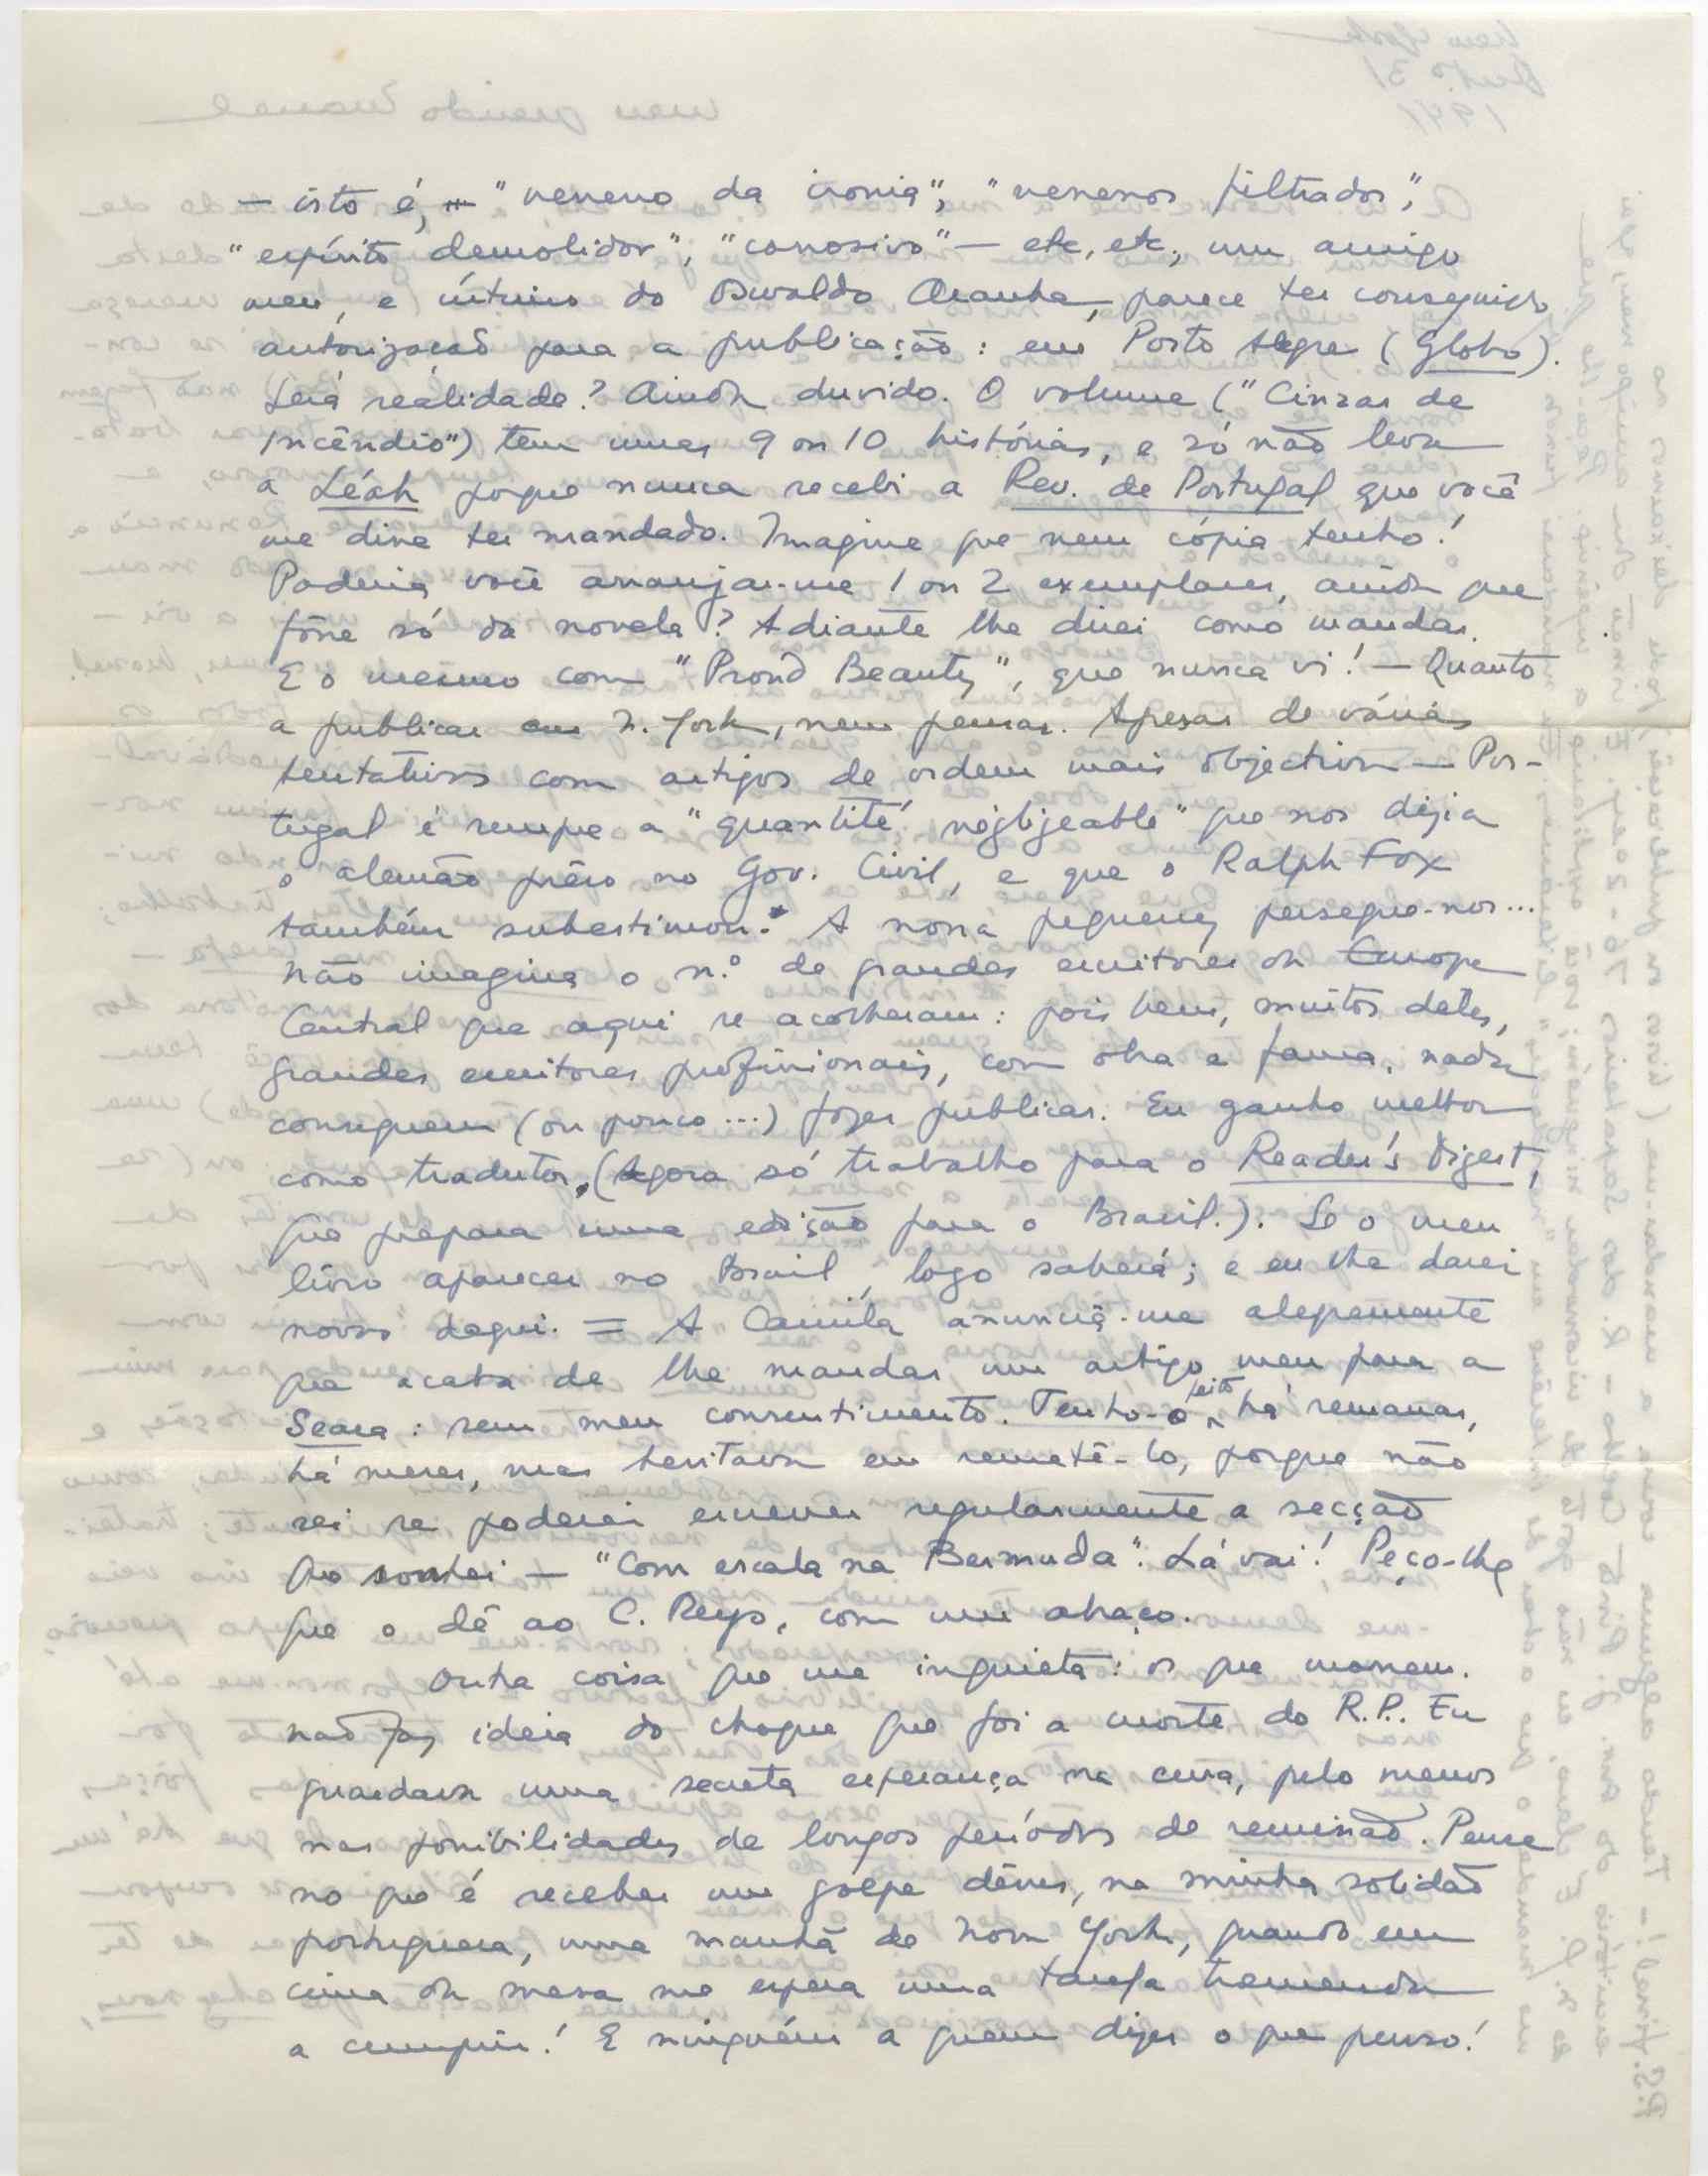 — isto é, — "veneno da ironia", "venenos filtrados",
"espírito demolidor", "corrosivo" — etc, etc., um amigo
meu, e íntimo do Oswaldo Aranha, parece ter conseguido
autorização para a publicação: em Porto Alegre (Globo).
Será realidade? Ainda duvido. O volume ("Cinzas de
Incêndio") tem umas 9 ou 10 histórias, e só não leva
a Léah porque nunca recebi a Rev. de Portugal que você
me disse ter mandado. Imagine que nem cópia tenho!
Poderia você arranjar-me 1 ou 2 exemplares, ainda que
fôsse só da novela? Adiante lhe direi como mandar.
E o mesmo com "Proud Beauty", que nunca vi! — Quanto
a publicar em N. York, nem pensar. Apesar de várias
tentativas com artigos de ordem mais objectiva — Por-
tugal é sempre a "quantité négligeable" que nos dizia
o alemão prêso no Gov. Civil, e que o Ralph Fox
também subestimou. A nossa pequenez persegue-nos...
Não imagina o n.º de grandes escritores da Europa
Central que aqui se acolheram: pois bem, muitos deles,
grandes escritores profissionais, com obra e fama, nada
conseguem (ou pouco...) fazer publicar. Eu ganho melhor
como tradutor. (Agora só trabalho para o Reader's Digest,
que prepara uma edição para o Brasil.). Se o meu
livro aparecer no Brasil, logo saberá; e eu lhe darei
novas daqui. = A Camila anuncia-me alegremente
que acaba de lhe mandar um artigo meu para a
Seara: sem meu consentimento. Tenho-o feito há semanas,
há meses, mas hesitava em remetê-lo, porque não
sei se poderei escrever regularmente a secção
que sonhei — "Com escala na Bermuda". Lá vai! Peço-lhe
que o dê ao C. Reys, com um abraço.
Outra coisa que me inquieta: os que morrem.
Não faz ideia do choque que foi a morte do R.P.. Eu
guardava uma secreta esperança na cura, pelo menos
nas possibilidades de longos períodos de remissão. Pense
no que é receber um golpe dêsses, na minha solidão
portuguesa, uma manhã de Nova York, quando em
cima da mesa me espera uma tarefa tremenda
a cumprir! E ninguém a quem dizer o que penso!